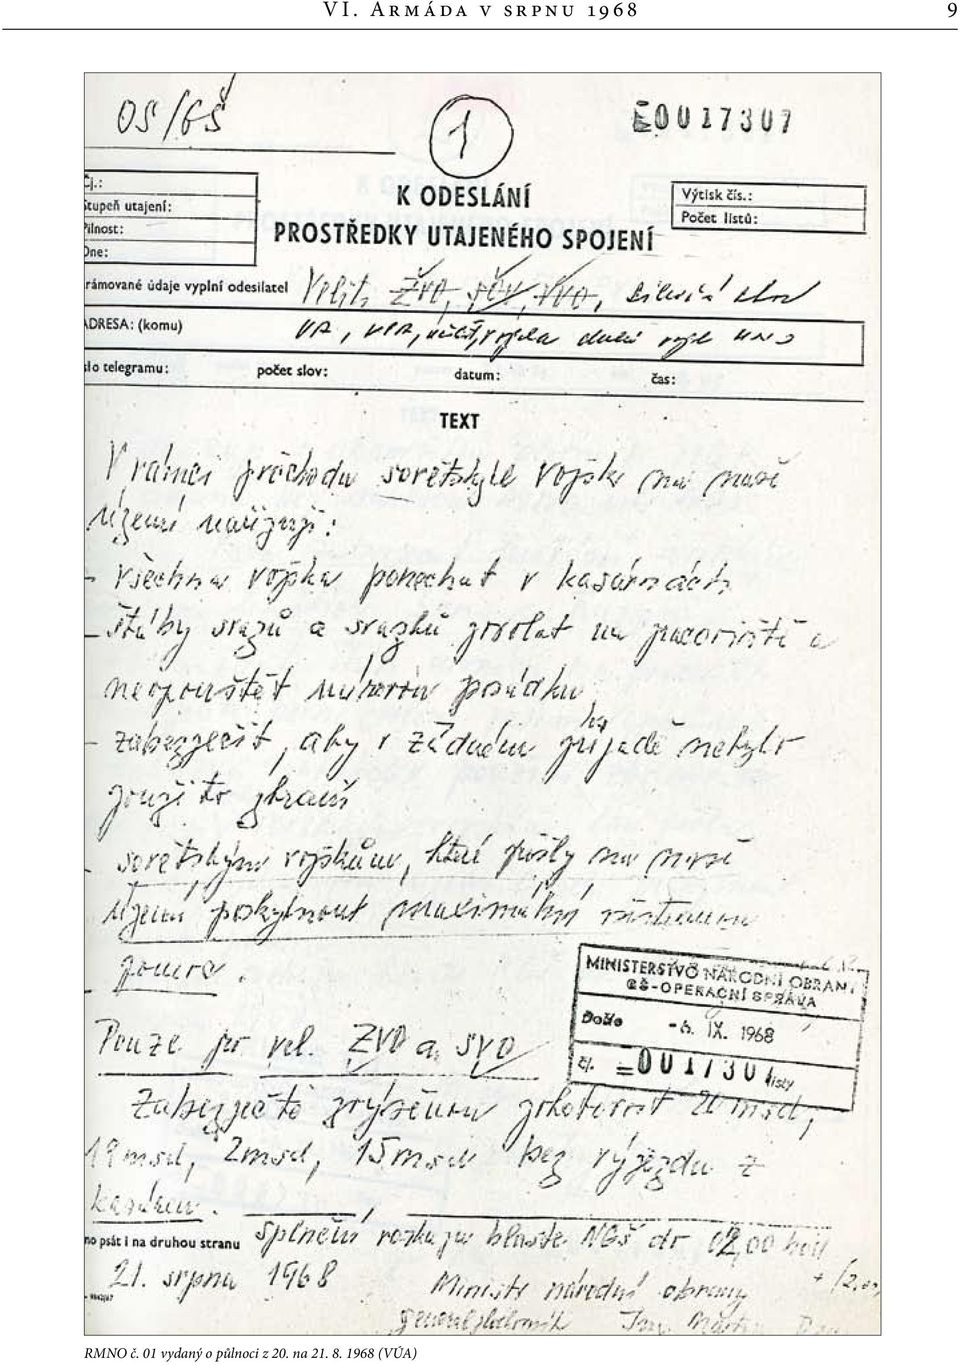 VI. Armáda v srpnu 1968 9
OS/GŠ
1
0017307
Čj.:
Stupeň utajení:
Pilnost:
Dne:
K ODESLÁNÍ
PROSTŘEDKY UTAJENÉHO SPOJENÍ
Výtisk čís.:
Počet listů:
rámované údaje vyplní odesilatel Velit. ZVO, SČV, VVO,
ADRESA: (komu) VA, VPA,
slo telegramu: počet slov: datum: čas:
TEXT
V rámci průchodu sovětských vojsk na naše
území nařizuji:
- všechna vojska ponechat v kasárnách
- štáby svazů a svazků povolat na pracoviště a
neopouštět posádku
- zabezpečit, aby v žádném případě nebylo
použito zbraní
- sovětským vojskům, která přišly na naše
území poskytnout maximální všestrannou
pomoc.
MINISTERSTVO NÁRODNÍ OBRANY
GŠ-OPERAČNÍ SPRÁVA
Došlo -6. IX. 1968
čj. 0017307 listy
Pouze pro vel. ZVO a SVO
Zabezpečte zvýšenou pohotovost 20 msd,
19 msd, 2 msd, 15 msd bez výjezdu z
kasáren.
no psát i na druhou stranu Splnění rozkazu hlaste NGŠ do 02,00 hod
21. srpna 1968
Ministr národní obrany
generálplukovník Ing. Martin
RMNO č. 01 vydaný o půlnoci z 20. na 21. 8. 1968 (VÚA)